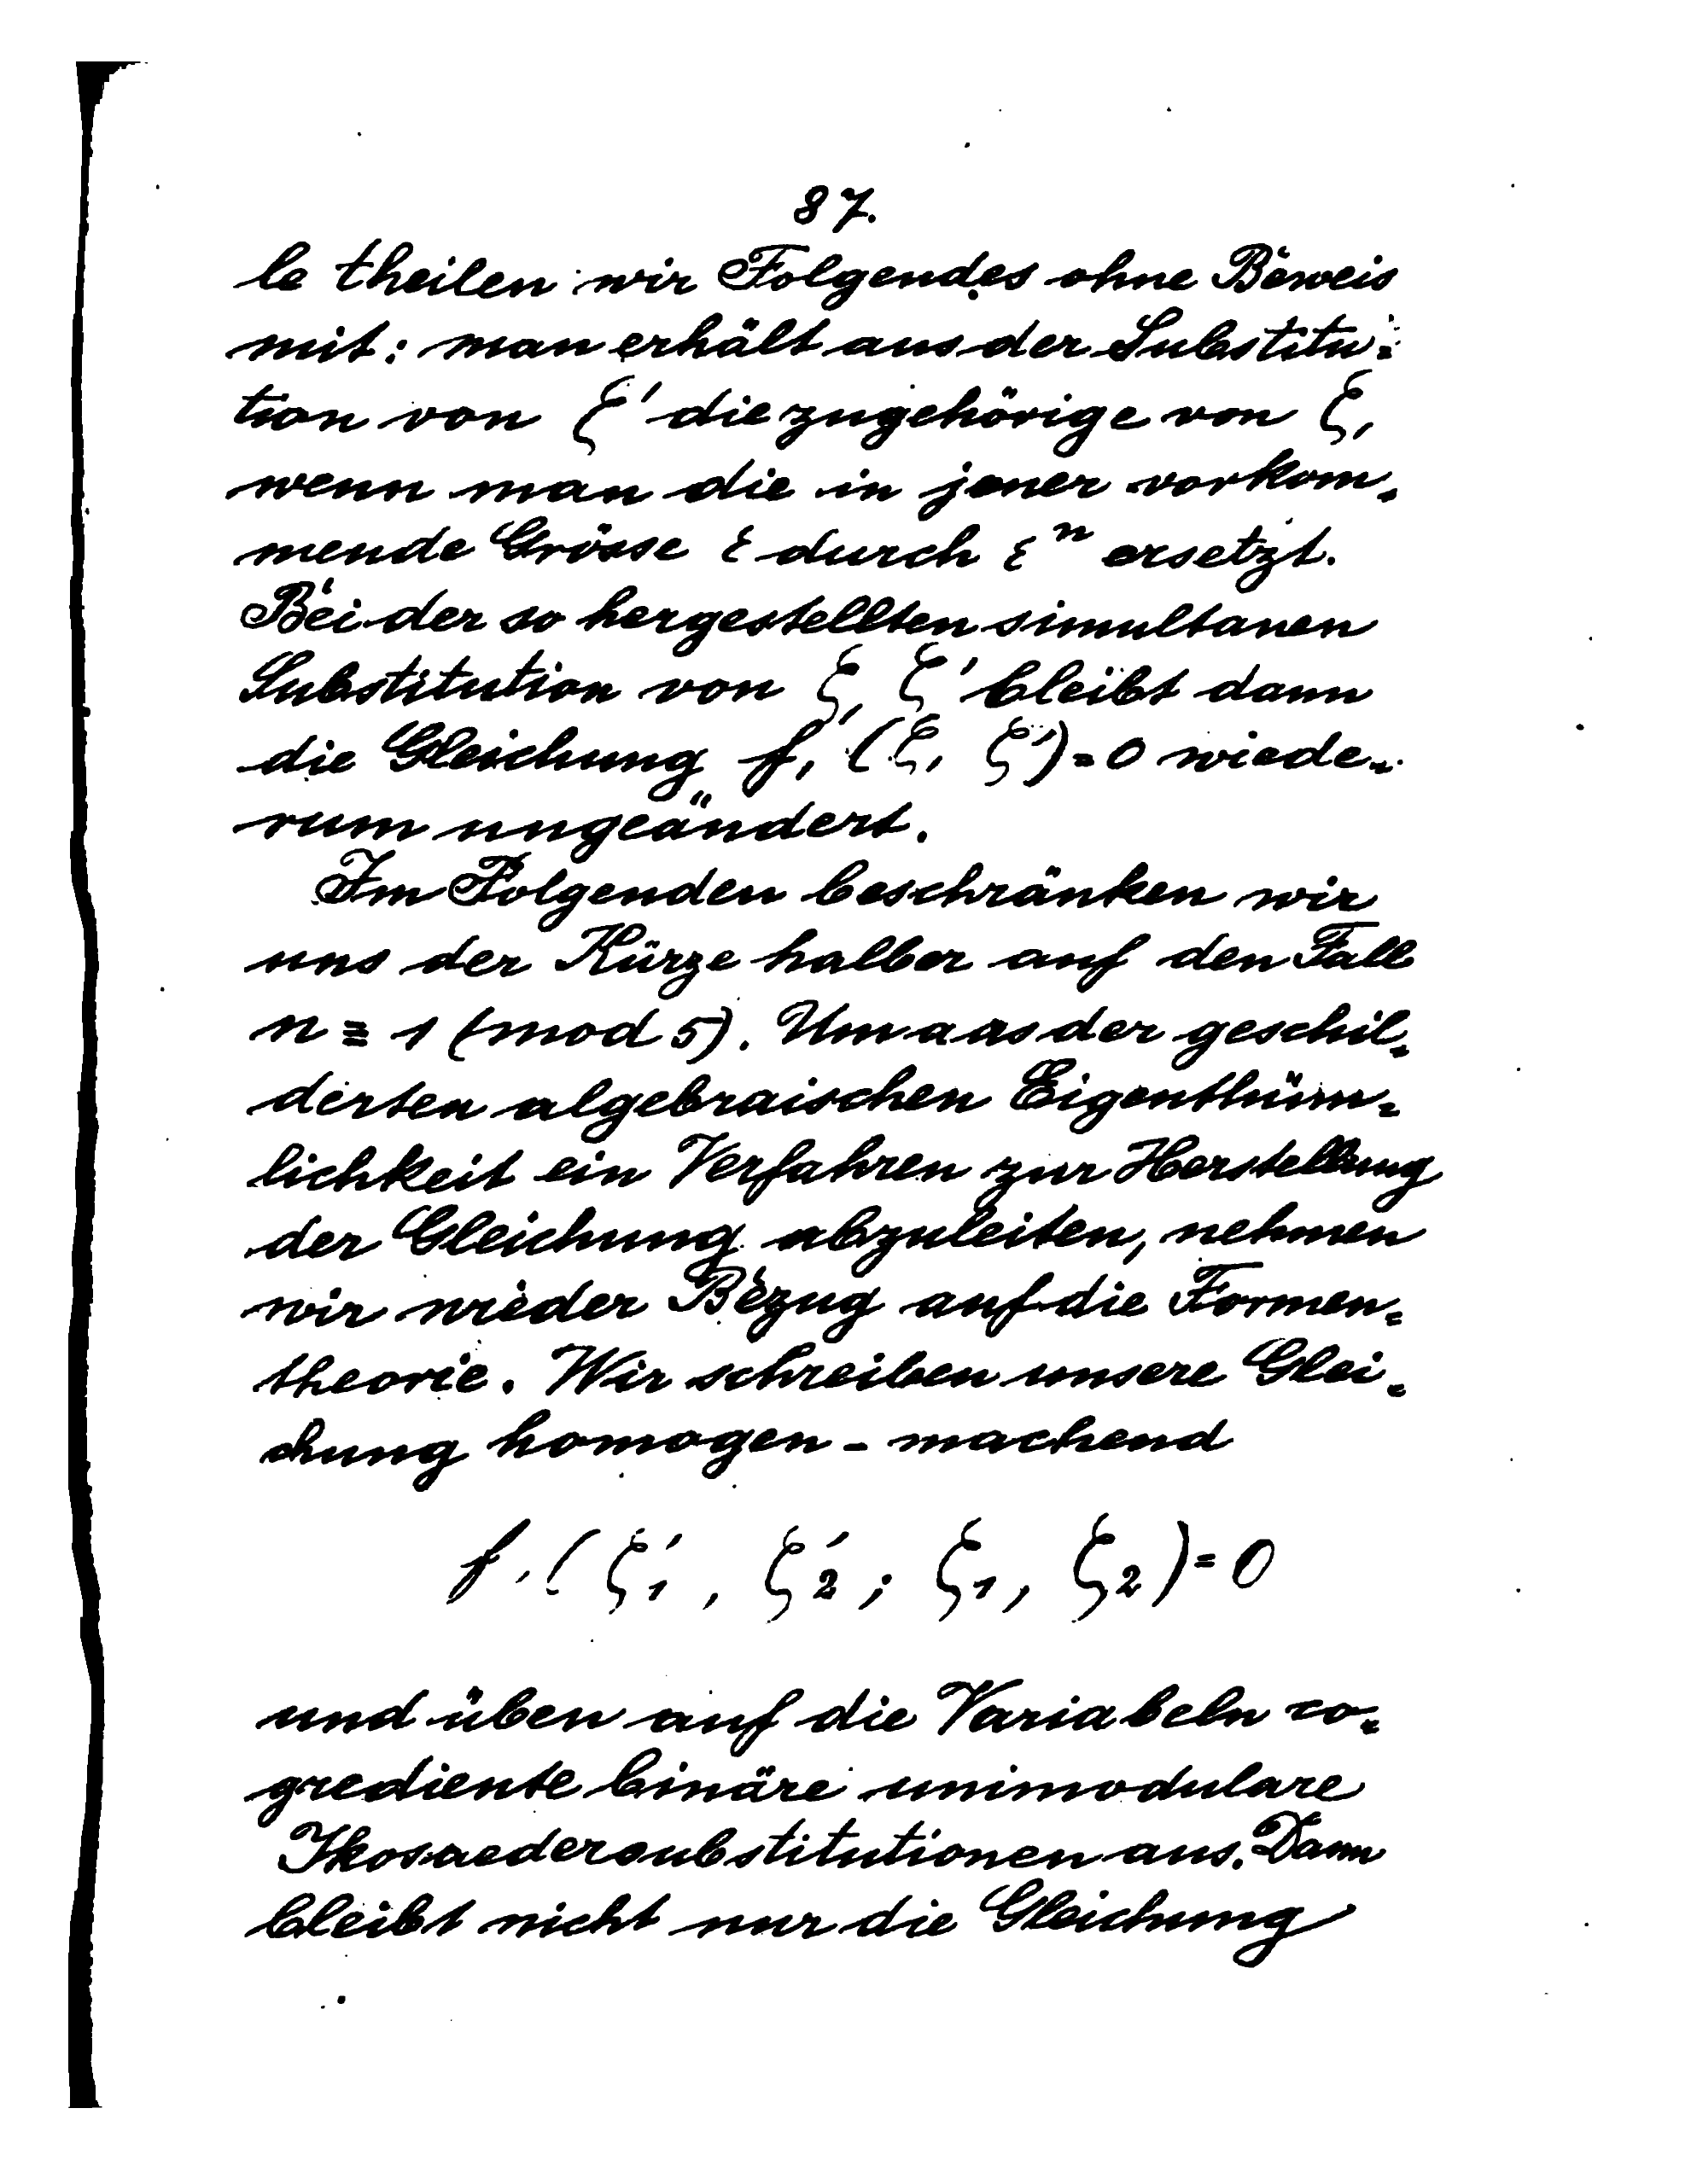 87.
le theilen wir Folgendes ohne Beweis
mit: man erhält aus der Substitu=
tion von ζ' die zugehörige von ζ,
wenn man die in jener vorkom=
mende Grösse ε durch εⁿ ersetzt.
Bei der so hergestellten simultanen
Substitution von ζ, ζ' bleibt dann
die Gleichung f, (ζ, ζ') = 0 wiede=
rum ungeändert.
Im Folgenden beschränken wir
uns der Kürze halber auf den Fall
n ≡ 1 (mod 5). Um aus der geschil=
derten algebraischen Eigenthüm=
lichkeit ein Verfahren zur Herstellung
der Gleichung abzuleiten, nehmen
wir wieder Bezug auf die Formen=
theorie. Wir schreiben unsere Glei=
chung homogen - machend
f, (ζ₁', ζ₂'; ζ₁, ζ₂) = 0
und üben auf die Variabeln co=
grediente binäre unimodulare
Ikosaedersubstitutionen aus. Dann
bleibt nicht nur die Gleichung